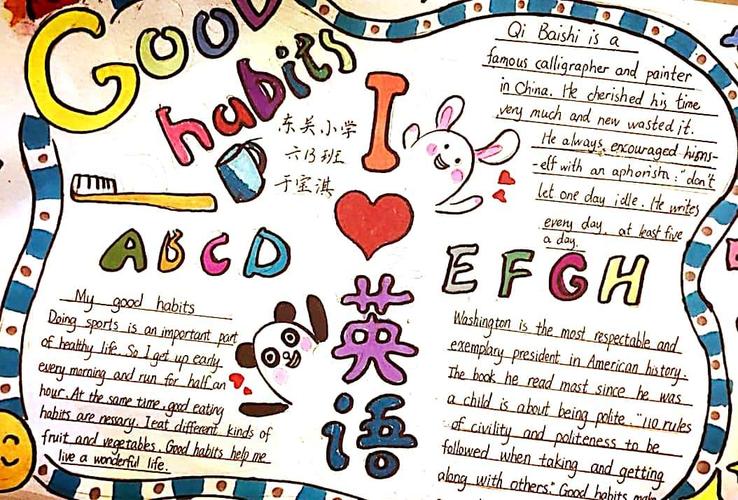 Good
habits
东关小学
六13班
于宝淇
I
英
语
Qi Baishi is a
famous calligrapher and painter
in China. He cherished his time
very much and new wasted it.
He always encouraged hims-
-elf with an aphorism: "don't
let one day idle. He writes
every day, at least five
a day.
ABCD
My good habits
Doing sports is an important part
of healthy life. So I get up early
every morning and run for half an
hour. At the same time, good eating
habits are nessary. I eat different kinds of
fruit and vegetables. Good habits help me
live a wonderful life.
EFGH
Washington is the most respectable and
exemplary president in American history.
The book he read most since he was
a child is about being polite. "110 rules
of civility and politeness to be
followed when taking and getting
along with others". Good habits make